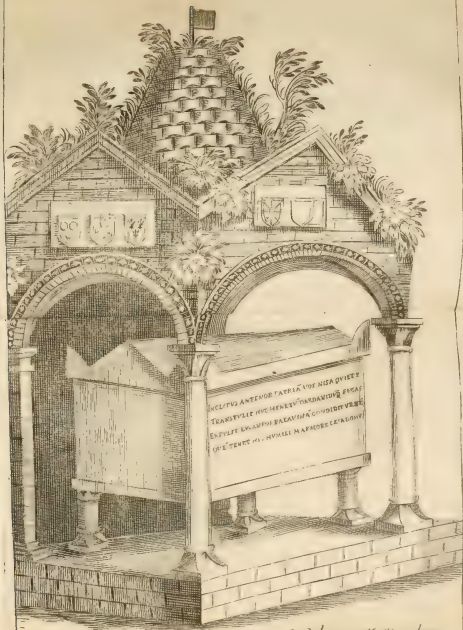 INCLITVS ANTENOR PATRIĀ VOX NISA QVIETĒ
TRANSTVLIT HVC HENETV̄ DARDANIDV̄Q FVGAS
EXPVLIT EVGANEOS PATAVINĀ CONDIDIT VRBĒ
QVĒ TENET HIC HVMILI MARMORE CESA DOMV